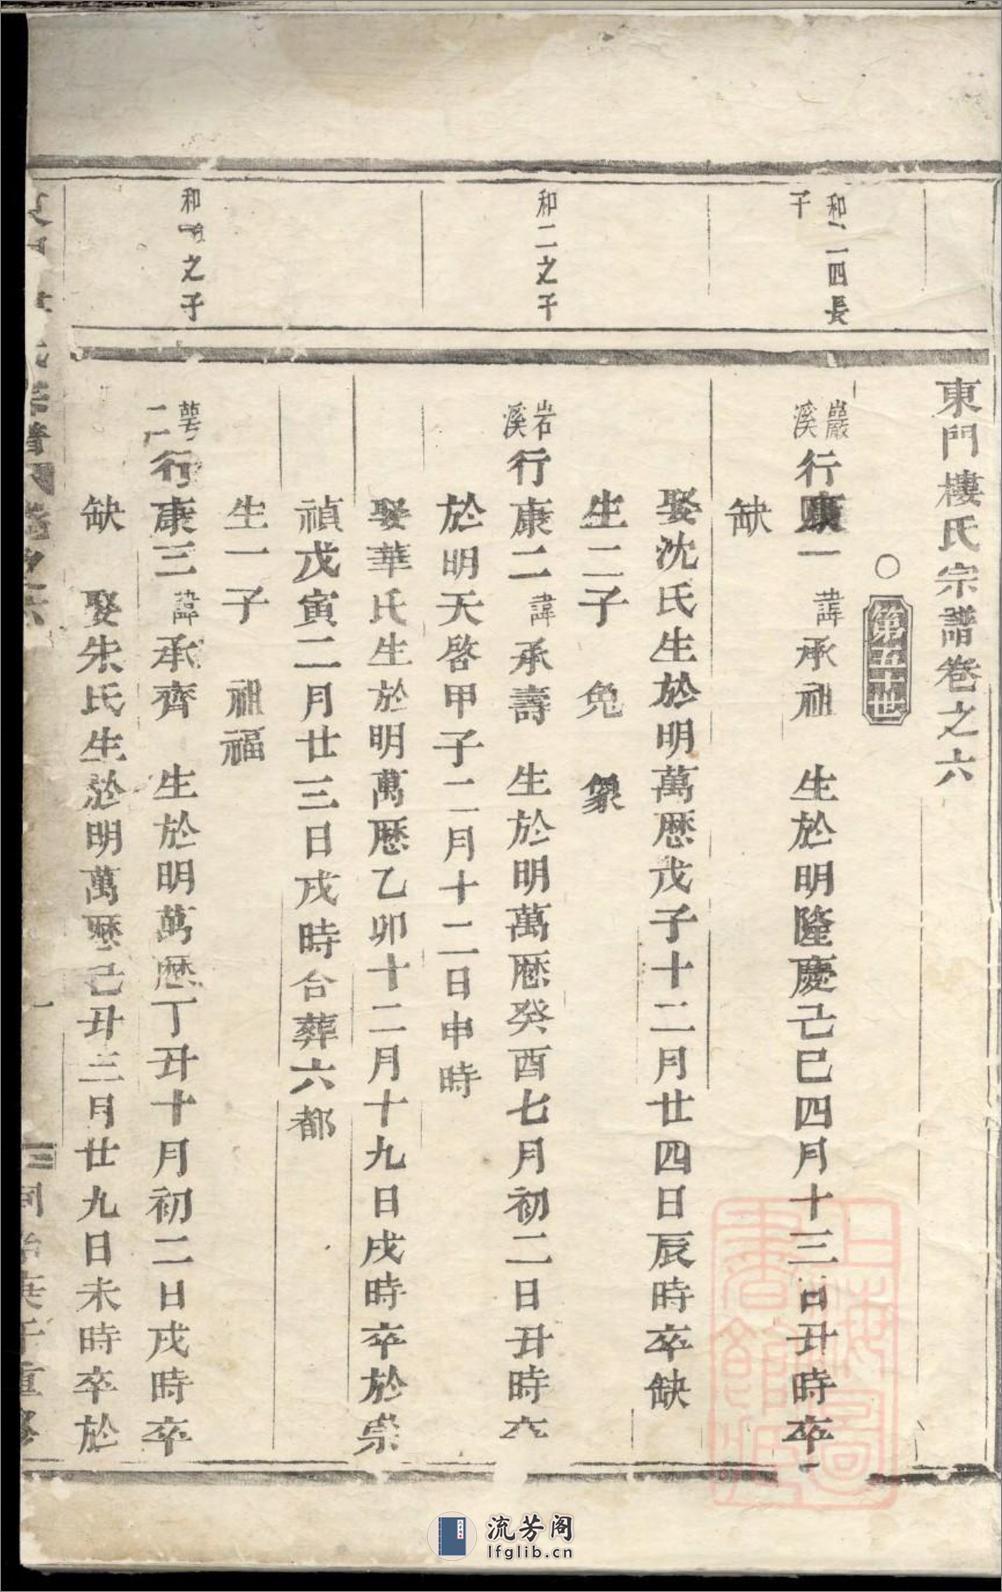 東門樓氏宗譜卷之六
○第五十世
和二四長
子
巖
溪
行康一 諱承祖 生於明隆慶己巳四月十三日丑時卒
缺
娶沈氏生於明萬厯戊子十二月廿四日辰時卒缺
生二子 兔 象
和二之子
岩
溪
行康二 諱承壽 生於明萬厯癸酉七月初二日丑時卒
於明天啓甲子二月十二日申時
娶華氏生於明萬厯乙卯十二月十九日戌時卒於崇
禎戊寅二月廿三日戌時合葬六都
生一子 祖福
和 之子
萼
二
行康三 諱承齊 生於明萬厯丁丑十月初二日戌時卒
缺 娶朱氏生於明萬厯己丑三月廿九日未時卒於
氏宗譜 卷之六 一 同治庚午重修
上海圖書館藏
流芳阁
lfglib.cn